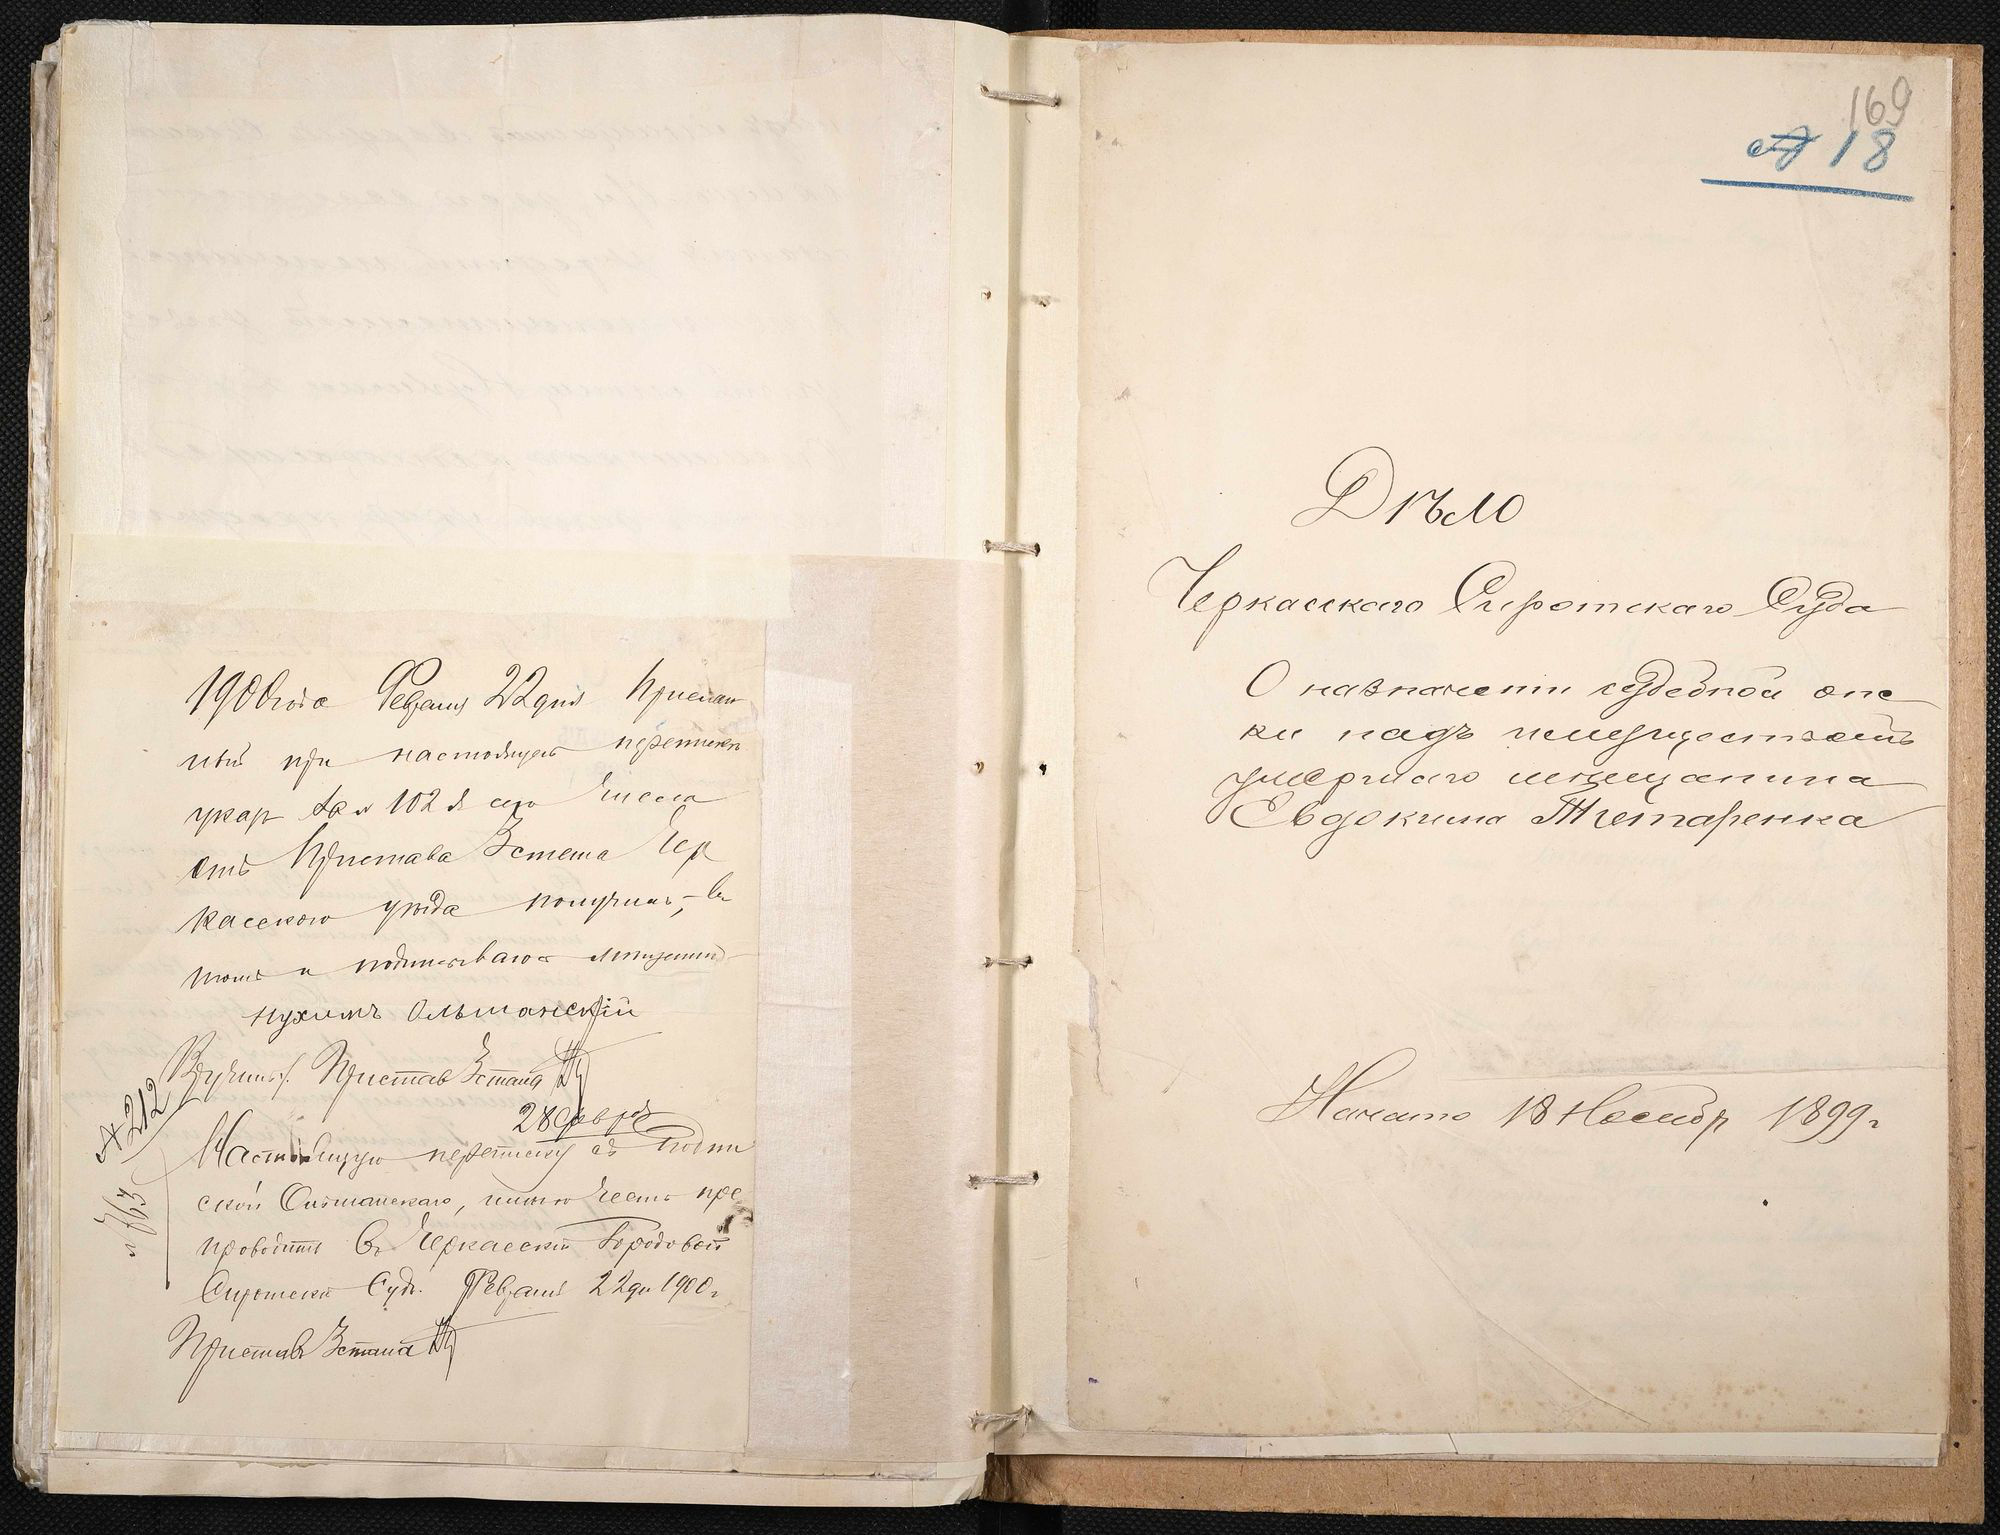 1900 года Февраля 22 дня Прислан
ный при настоящей переписке
указ за № 102 я сего числа
отъ Пристава 3 стана Чер
касскаго уѣзда получилъ, въ
томъ и подписываюсь
нухимъ Ольшанскій
Вручилъ Приставъ 3 стана
№ 212
28 февр
Настоящую переписку съ подпи
ской Ольшанскаго, имѣю честь пре
проводить въ Черкасскій Городовой
Сиротскій Судъ. Февраля 22 дн 1900 г
Приставъ 3 стана
169
№ 18
Дѣло
Черкасскаго Сиротскаго Суда
О назначеніи судебной опе
ки надъ имуществомъ
умершаго мѣщанина
Евдокима Титаренка
Начато 18 Ноября 1899 г